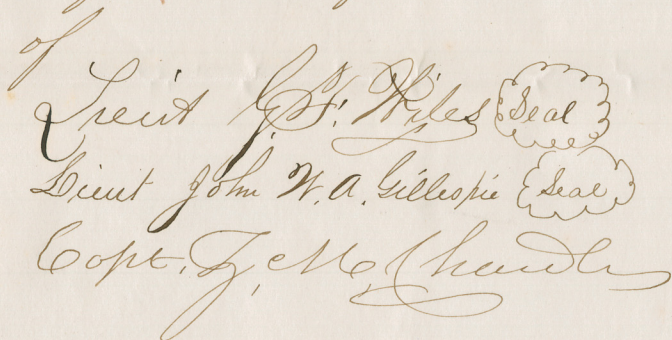 of
Lieut G. W. Wyles Seal
Lieut John W. A. Gillespie Seal
Capt. Z. M. Chandler